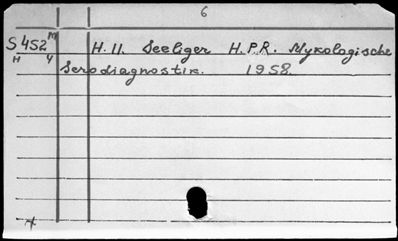 6
S 452 M
H. 11. Seeliger H.P.R. Mykologische
H 4
Serodiagnostik. 1958.